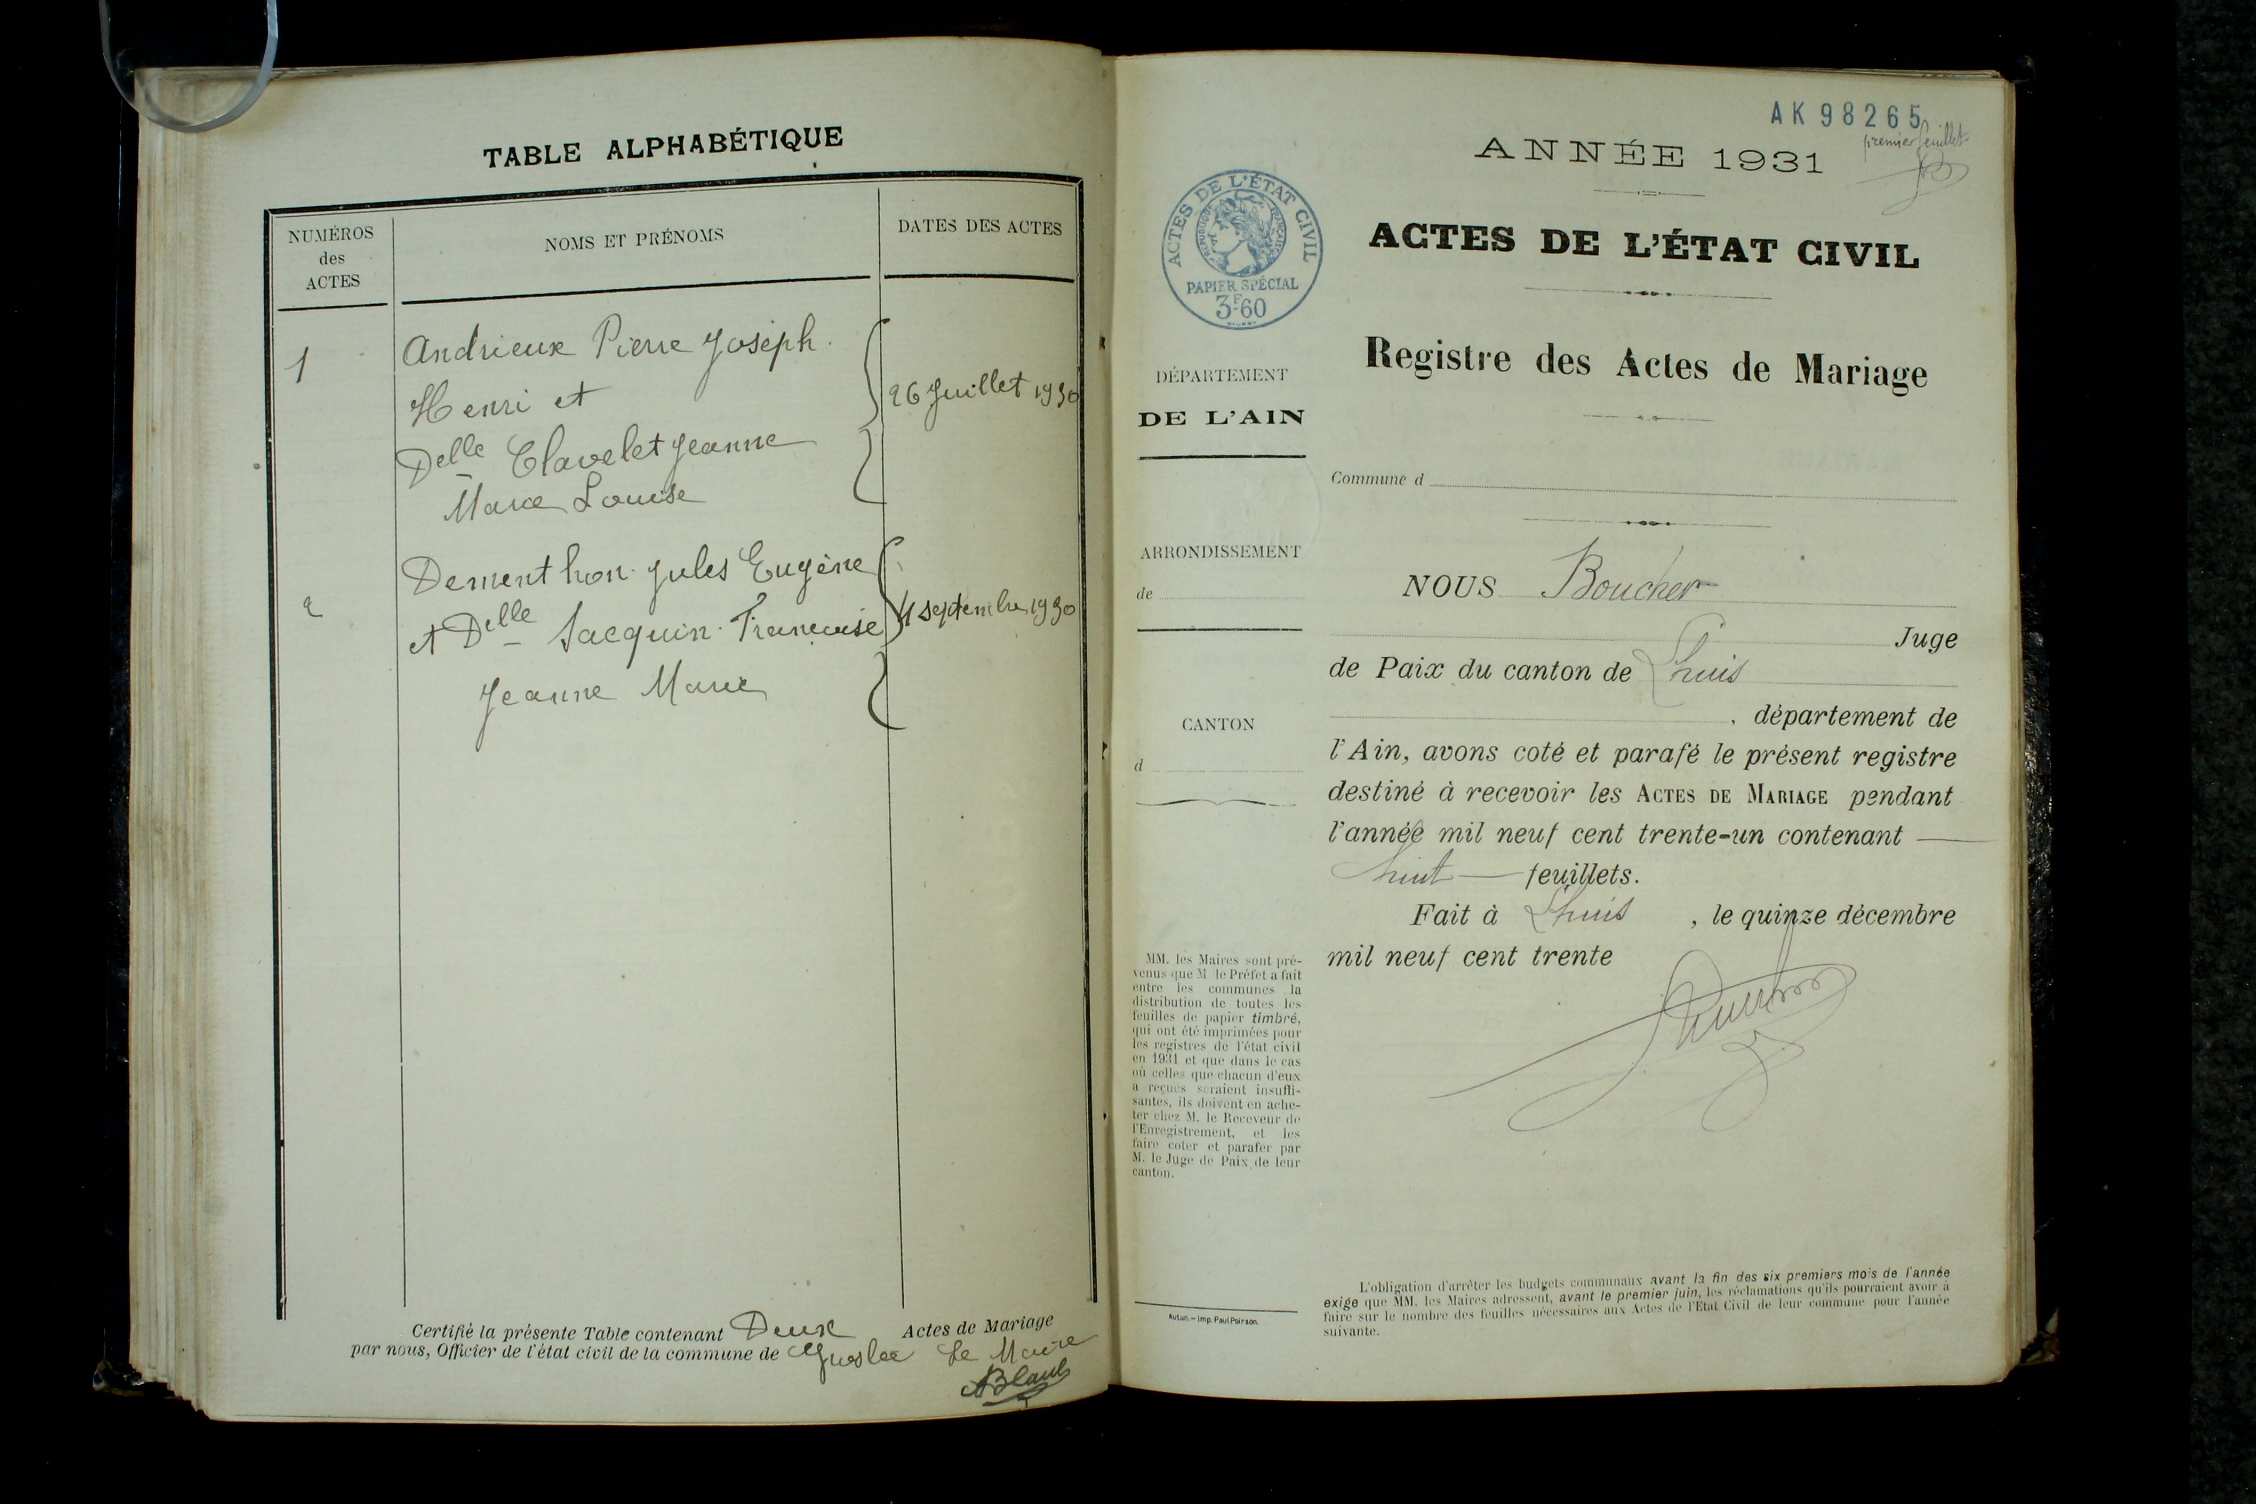 TABLE ALPHABÉTIQUE
NUMÉROS
des
ACTES
NOMS ET PRÉNOMS
DATES DES ACTES
1
Andrieux Pierre Joseph.
Henri et
26 Juillet 1930
Delle Clavelet Jeanne
Marie Louise
2
Dementhon Jules Eugène
et Delle Jacquin Francoise
septembre 1930
Jeanne Marie
Certifié la présente Table contenant Deux Actes de Mariage
par nous, Officier de l'état civil de la commune de Groslée Le Maire
AK 98265
premier feuillet
ANNÉE 1931
ACTES DE L'ÉTAT CIVIL
RÉPUBLIQUE FRANÇAISE
PAPIER SPÉCIAL
3F60
ACTES DE L'ÉTAT CIVIL
Registre des Actes de Mariage
DÉPARTEMENT
DE L'AIN
Commune d
ARRONDISSEMENT
de
CANTON
d
NOUS Boucher
Juge
de Paix du canton de Lhuis
, département de
l'Ain, avons coté et parafé le présent registre
destiné à recevoir les ACTES DE MARIAGE pendant
l'année mil neuf cent trente-un contenant
huit feuillets.
Fait à Lhuis, le quinze décembre
mil neuf cent trente
MM. les Maires sont pré-
venus que M. le Préfet a fait
entre les communes la
distribution de toutes les
feuilles de papier timbré,
qui ont été imprimées pour
les registres de l'état civil
en 1931 et que dans le cas
où celles que chacun d'eux
a reçues seraient insuffi-
santes, ils doivent en ache-
ter chez M. le Receveur de
l'Enregistrement, et les
faire coter et parafer par
M. le Juge de Paix de leur
canton.
Autun. — Imp. Paul Poirson.
L'obligation d'arrêter les budgets communaux avant la fin des six premiers mois de l'année
exige que MM. les Maires adressent, avant le premier juin, les réclamations qu'ils pourraient avoir à
faire sur le nombre des feuilles nécessaires aux Actes de l'Etat Civil de leur commune pour l'année
suivante.